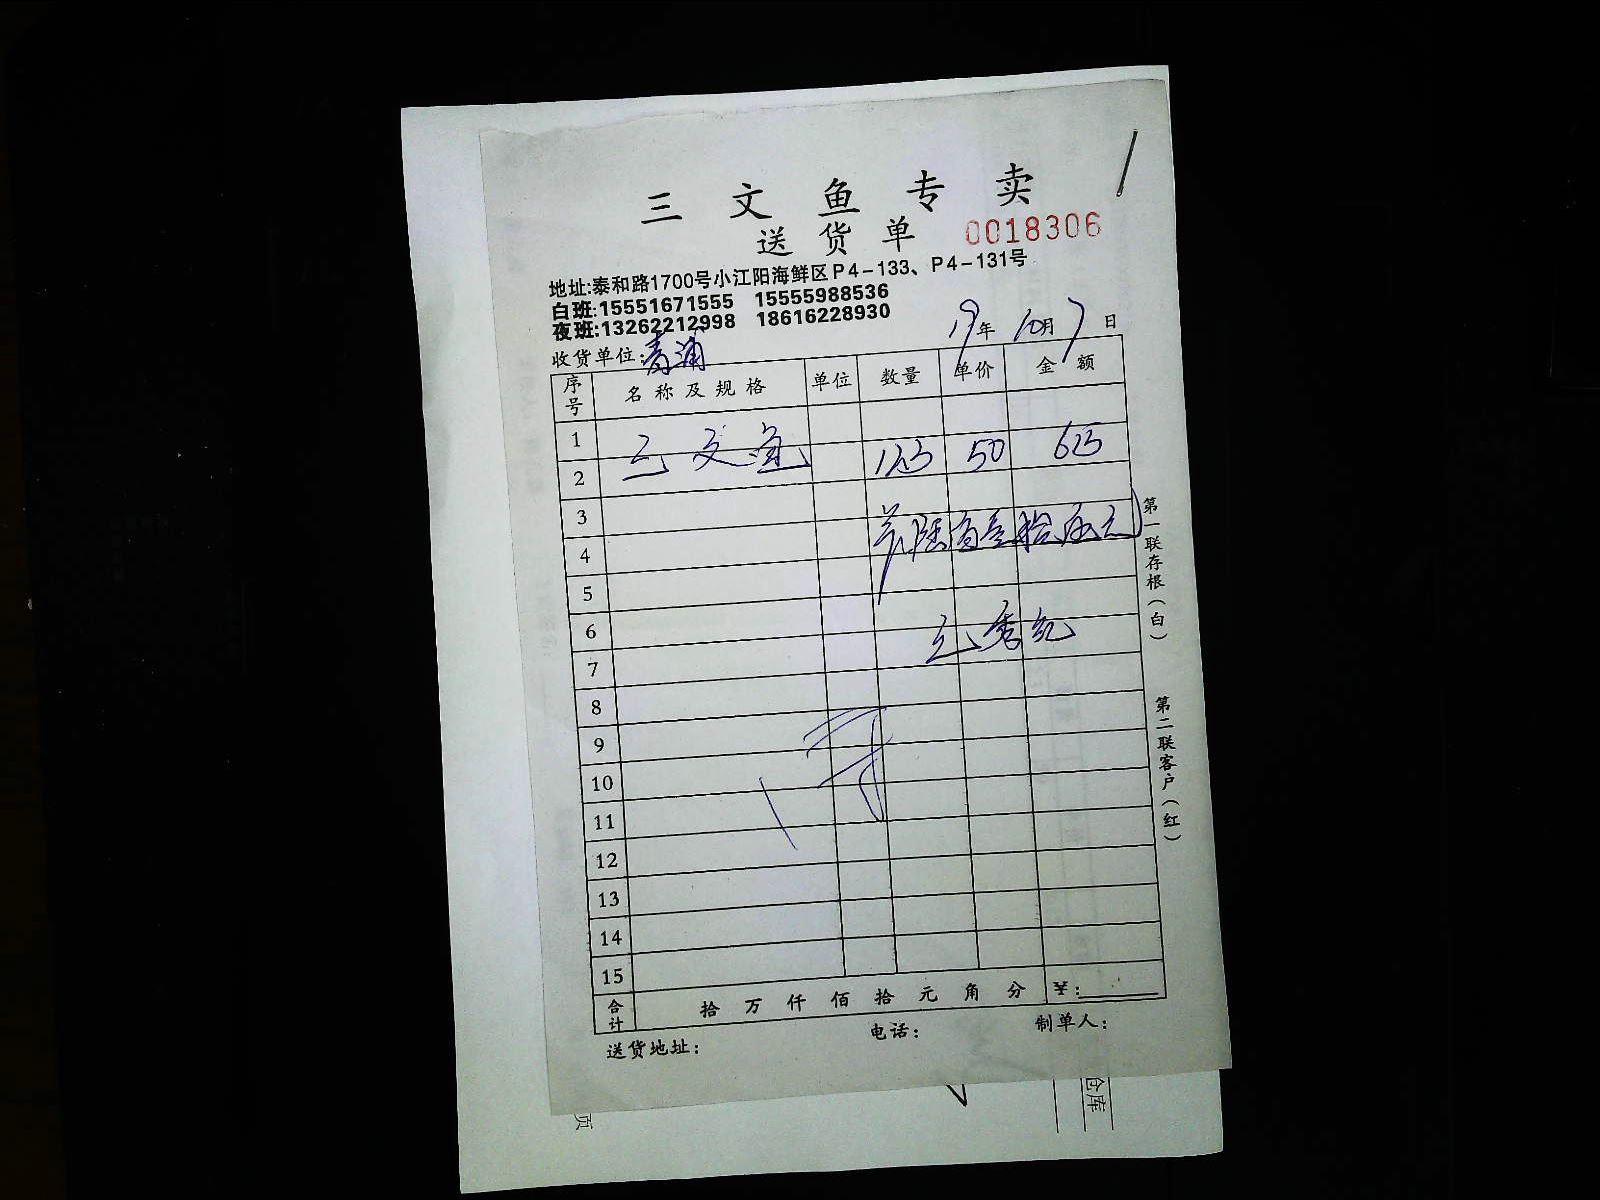 三文鱼专卖
送货单 0018306
地址:泰和路1700号小江阳海鲜区P4-133、P4-131号
白班:15551671555 15555988536
夜班:13262212998 18616228930
19年10月7日
收货单位:青浦
序号 名称及规格 单位 数量 单价 金额
1
三文鱼 50
2
3
4
5
6
7
8
9
10
11
12
13
14
15
合计 拾万仟佰拾元角分 ¥:
送货地址: 电话: 制单人:
第一联存根(白)
第二联客户(红)
页
仓库